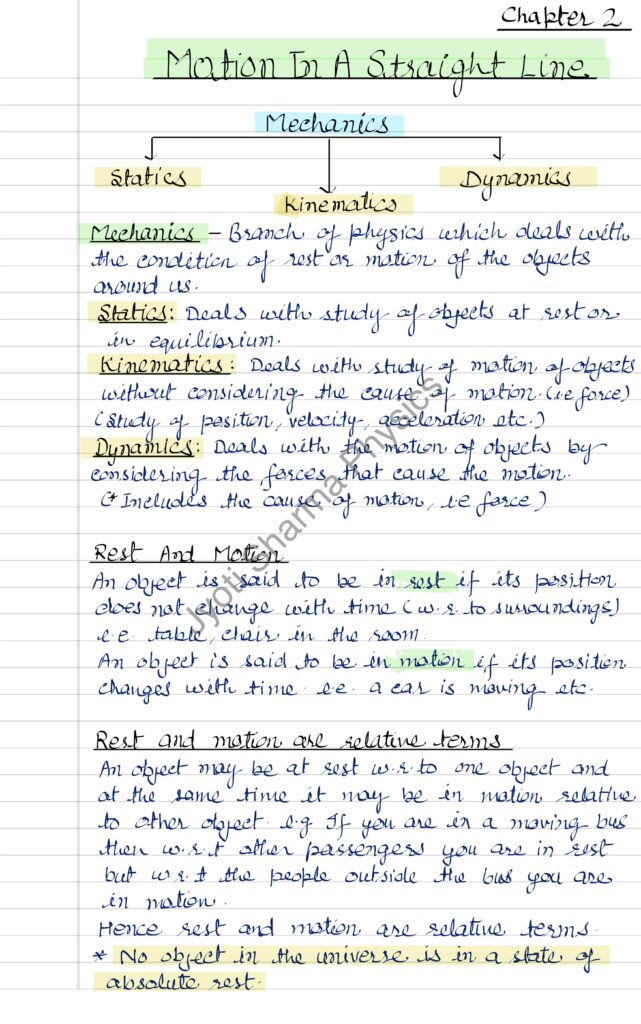 Chapter 2
Motion In A Straight Line
Mechanics
Statics
Kinematics
Dynamics
Mechanics - Branch of physics which deals with
the condition of rest or motion of the objects
around us.
Statics: Deals with study of objects at rest or
in equilibrium.
Kinematics: Deals with study of motion of objects
without considering the cause of motion. (i.e force)
(Study of position, velocity, acceleration etc.)
Dynamics: Deals with the motion of objects by
considering the forces that cause the motion.
(* Includes the cause of motion, i.e force)
Rest And Motion
An object is said to be in rest if its position
does not change with time (w.r. to surroundings)
i.e. table, chair in the room.
An object is said to be in motion if its position
changes with time. i.e. a car is moving etc.
Rest and motion are relative terms
An object may be at rest w.r. to one object and
at the same time it may be in motion relative
to other object. e.g If you are in a moving bus
then w.r.t other passengers you are in rest
but w.r.t the people outside the bus you are
in motion.
Hence rest and motion are relative terms.
* No object in the universe is in a state of
absolute rest.
Jyoti Sharma Physics